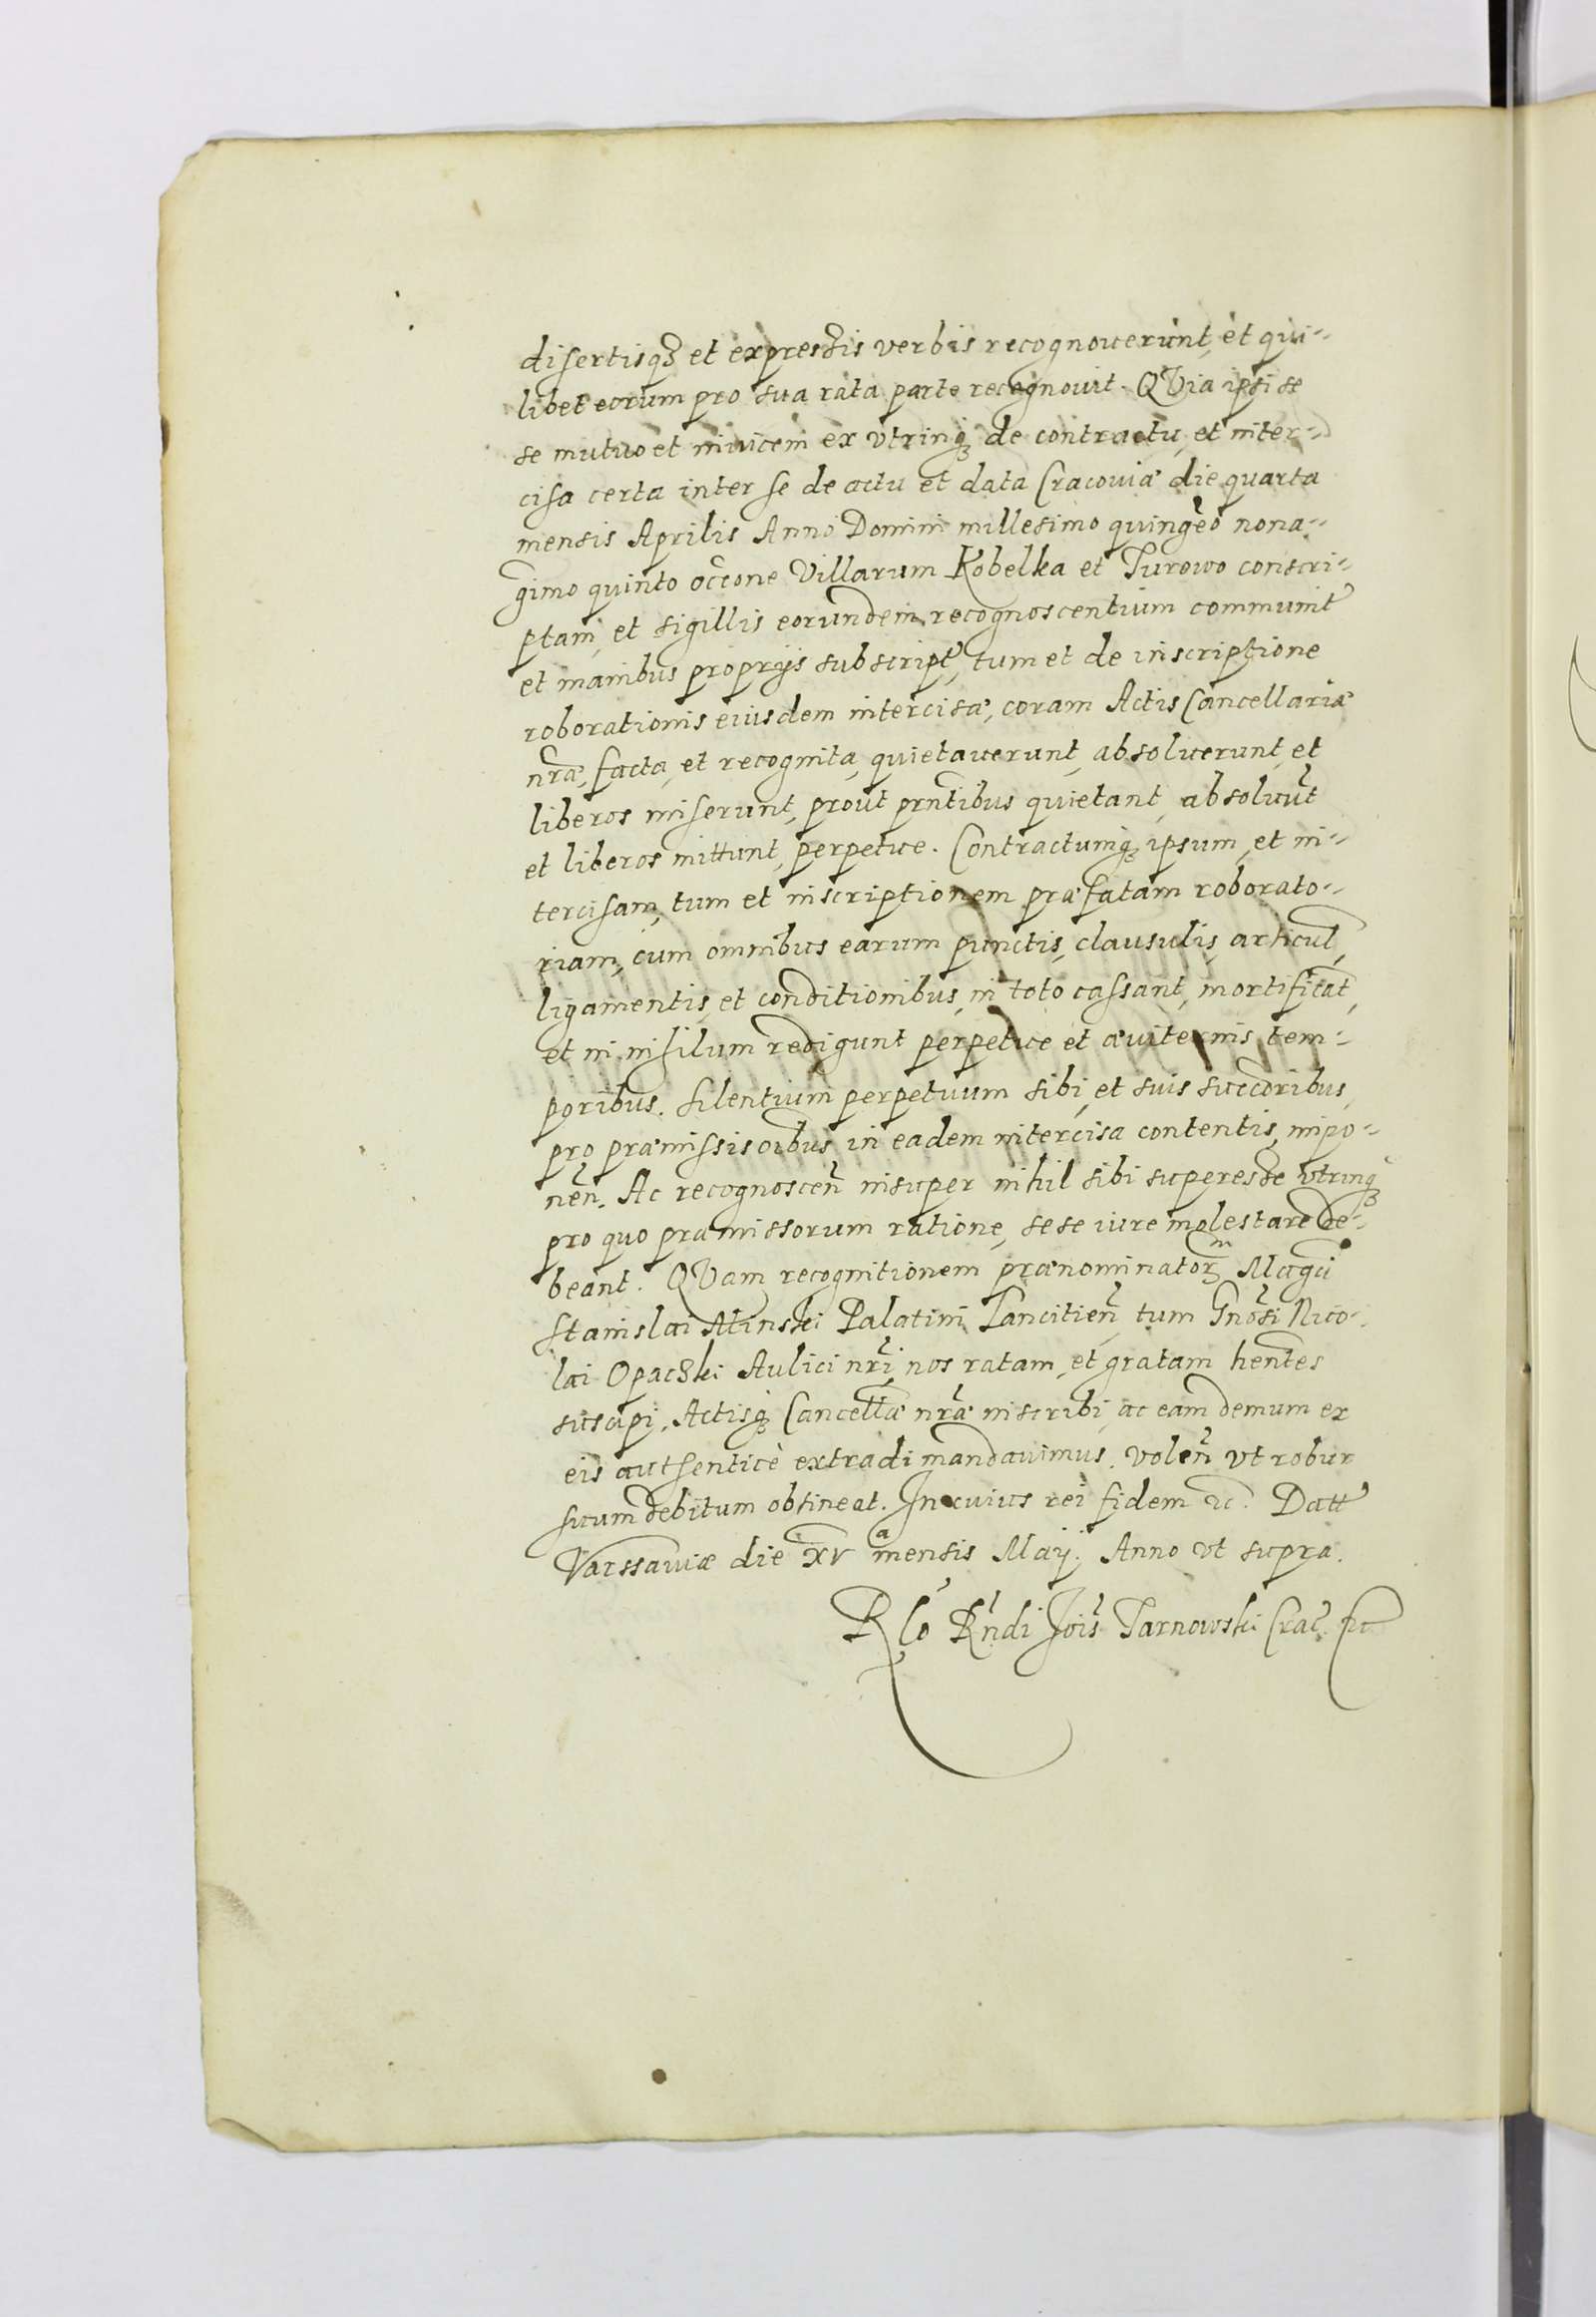 disertisq3 et expressis verbis recognouerunt, et qui-
libet eorum pro sua rata parte recognouit. QVia ipsi se
se mutuo et inuicem ex vtrinq3 de contractu, et inter-
cisa certa inter se de actu et data Cracouiæ die quarta
mensis Aprilis Anno Domini millesimo quingẽo nona-
gimo quinto occone Villarum Kobelka et Turowo conscri-
ptam, et sigillis eorundem recognoscentium communit
et manibus proprijs subscript, tum et de inscriptione
roborationis eiusdem intercisæ, coram Actis Cancellariæ
nræ, facta, et recognita, quietauerunt, absoluerunt, et
liberos miserunt, prout prntibus quietant, absoluũt
et liberos mittunt, perpetue. Contractumq3 ipsum, et in-
tercisam, tum et inscriptionem præfatam roborato-
riam, cum omnibus earum punctis, clausulis, articul,
ligamentis, et conditionibus, in toto cassant, mortificãt,
et in nihilum redigunt perpetue et æuiternis tem-
poribus. Silentium perpetuum sibi, et suis succoribus,
pro præmissis oibus in eadem intercisa contentis, impo-
nẽn. Ac recognoscen insuper nihil sibi superesse vtrinq3
pro quo præmissorum ratione, sese iure molestare de-
beant. QVam recognitionem prænominator Magci
Stanislai Minski Palatini Lancitien tum Gnosi Nico-
lai Opaczki Aulici nri, nos ratam, et gratam hentes
suscipi, Actisq3 Cancellæ nræ inscribi, ac eam demum ex
eis authenticè extradi mandauimus. Volen vt robur
suum debitum obtineat. In cuius rei fidem &c. Datt
Varssauiæ die xv a mensis Maij. Anno vt supra.
Rlo Rndi Jois Tarnowski Crac